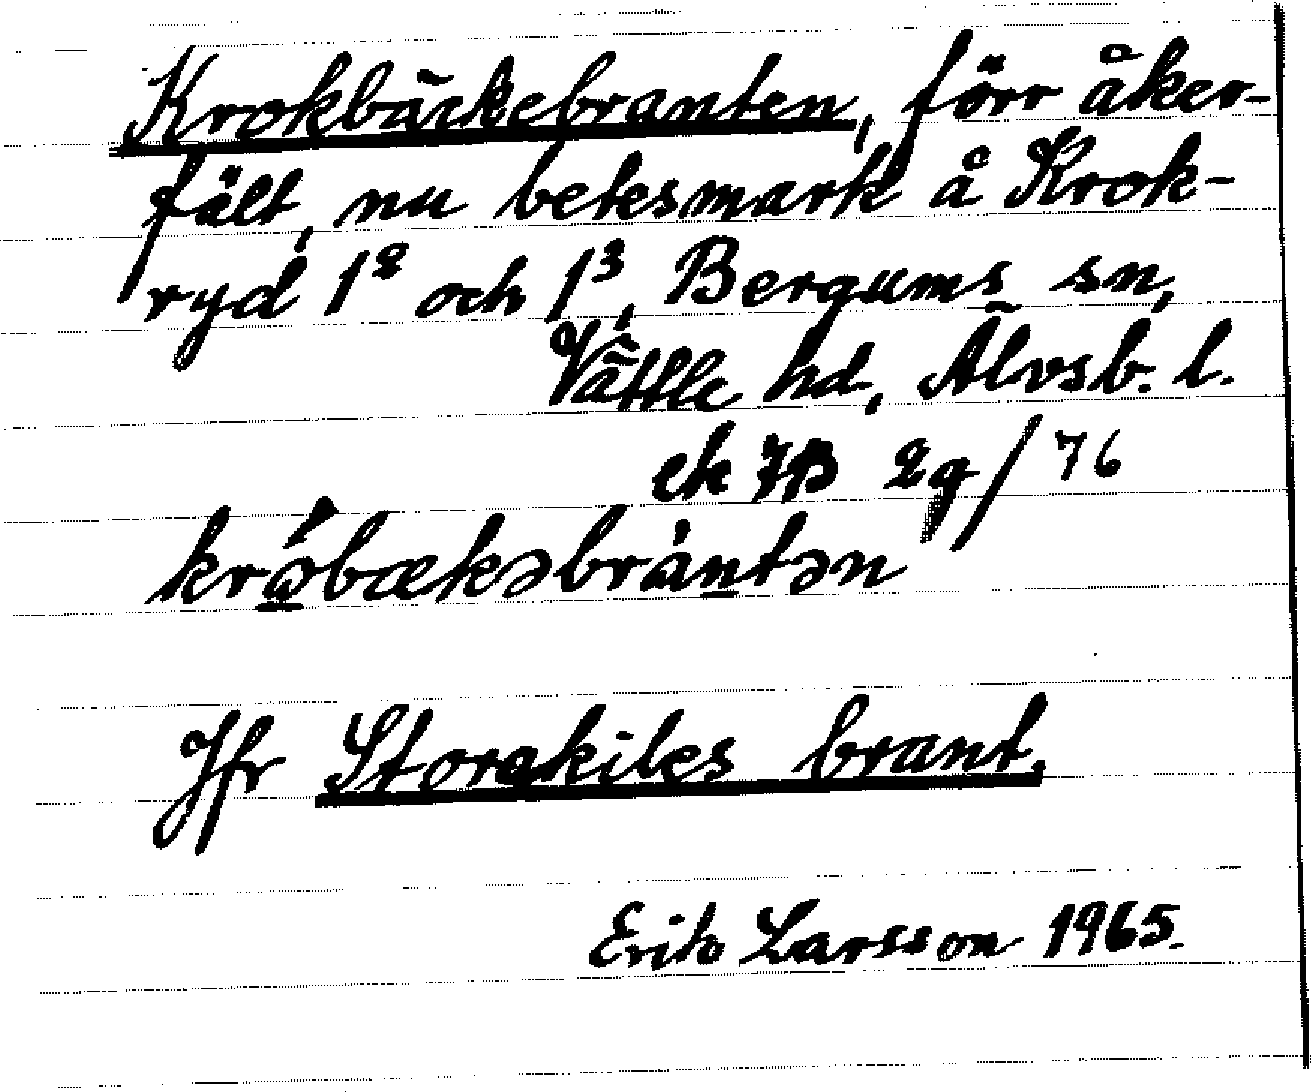 Krokbäckebranten, förr åker-
fält, nu betesmark å Krok-
ryd 1² och 1³, Bergums sn,
Vättle hd, Älvsb. l.
ek 7B 2g/76
krǿbækəbràntən
Jfr Storakiles brant.
Erik Larsson 1965.